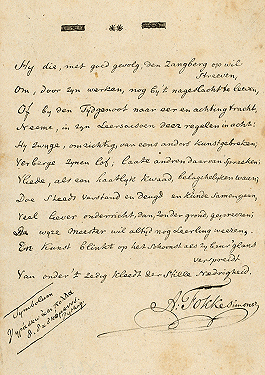 Hy die, met goed gevolg den Zangberg op wil
Streeven,
Om, door zyn werken, nog by 't nageslacht te leeven,
Of by den Tydgenoot naar eer en achting tracht,
Neeme, in zyn Leersaisoen deez' regelen in acht:
Hy zwyge, omzichtig, van eens anders kunstgebreken;
Verberge zynen lof, laate andren daar van spreeken:
Vliede, als een haatlyk kwaad, belagchelyken waan;
Doe Steeds Verstand en deugd en kunde Samengaan,
Veel liever onderricht, dan, zonder grond, gepreezen;
De wyze Meester wil altyd nog Leerling weezen.
En Kunst blinkt op het Schoonst als zy heur glans
verspreidt
Van onder 't zedig kleed der Stille Nedrigheid.
A. Fokke Simonsz.
Symbolum